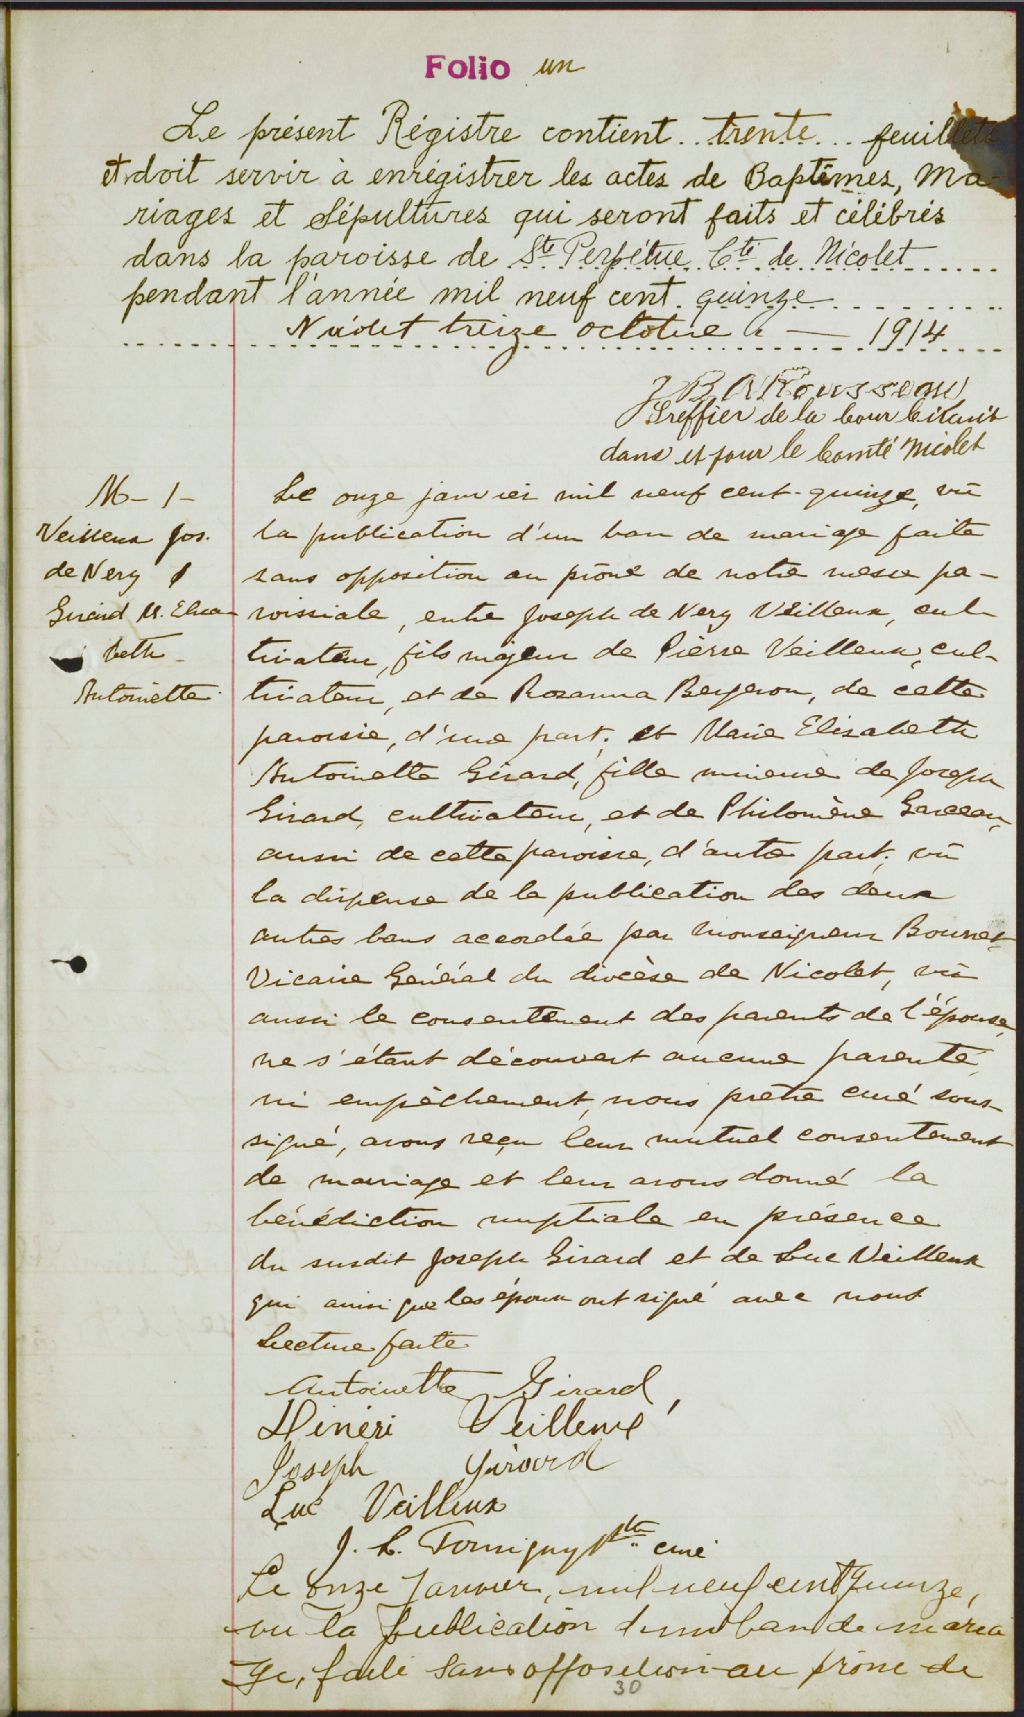 Folio un
Le présent Régistre contient...trente...feuillets
et doit servir à enrégistrer les actes de Baptêmes, Ma-
riages et Sépultures qui seront faits et célébrés
dans la paroisse de Ste Perpétue Cté de Nicolet
pendant l'année mil neuf cent quinze
Nicolet treize octobre 1914
J B A Rousseau
Greffier de la Cour Circuit
dans et pour le Comté Nicolet
M - 1 -
Veilleux Jos.
de Nery &
Girard M. Elisa-
beth
Antoinette
Le onze janvier mil neuf cent-quinze, vû
la publication d'un ban de mariage faite
sans opposition au prône de notre messe pa-
roissiale, entre Joseph de Nery Veilleux, cul-
tivateur, fils majeur de Pierre Veilleux, cul-
tivateur, et de Rosanna Bergeron, de cette
paroisse, d'une part; et Marie Elisabeth
Antoinette Girard, fille mineure de Joseph
Girard, cultivateur, et de Philomène Garceau,
aussi de cette paroisse, d'autre part; vû
la dispense de la publication des deux
autres bans accordée par Monseigneur Bourret
Vicaire Général du diocèse de Nicolet, vû
aussi le consentement des parents de l'épouse,
ne s'étant découvert aucune parenté,
ni empêchement, nous prêtre curé sous-
signé, avons reçu leur mutuel consentement
de mariage et leur avons donné la
bénédiction nuptiale en présence
du susdit Joseph Girard et de Luc Veilleux
qui ainsi que les époux ont signé avec nous
Lecture faite
Antoinette Girard,
Dinéri Veilleux
Joseph Girard
Luc Veilleux
J. L. Ptre curé
Le onze Janvier, mil neuf cent quinze,
vu la publication d'un ban de maria
ge, faite sans opposition au prône de
30